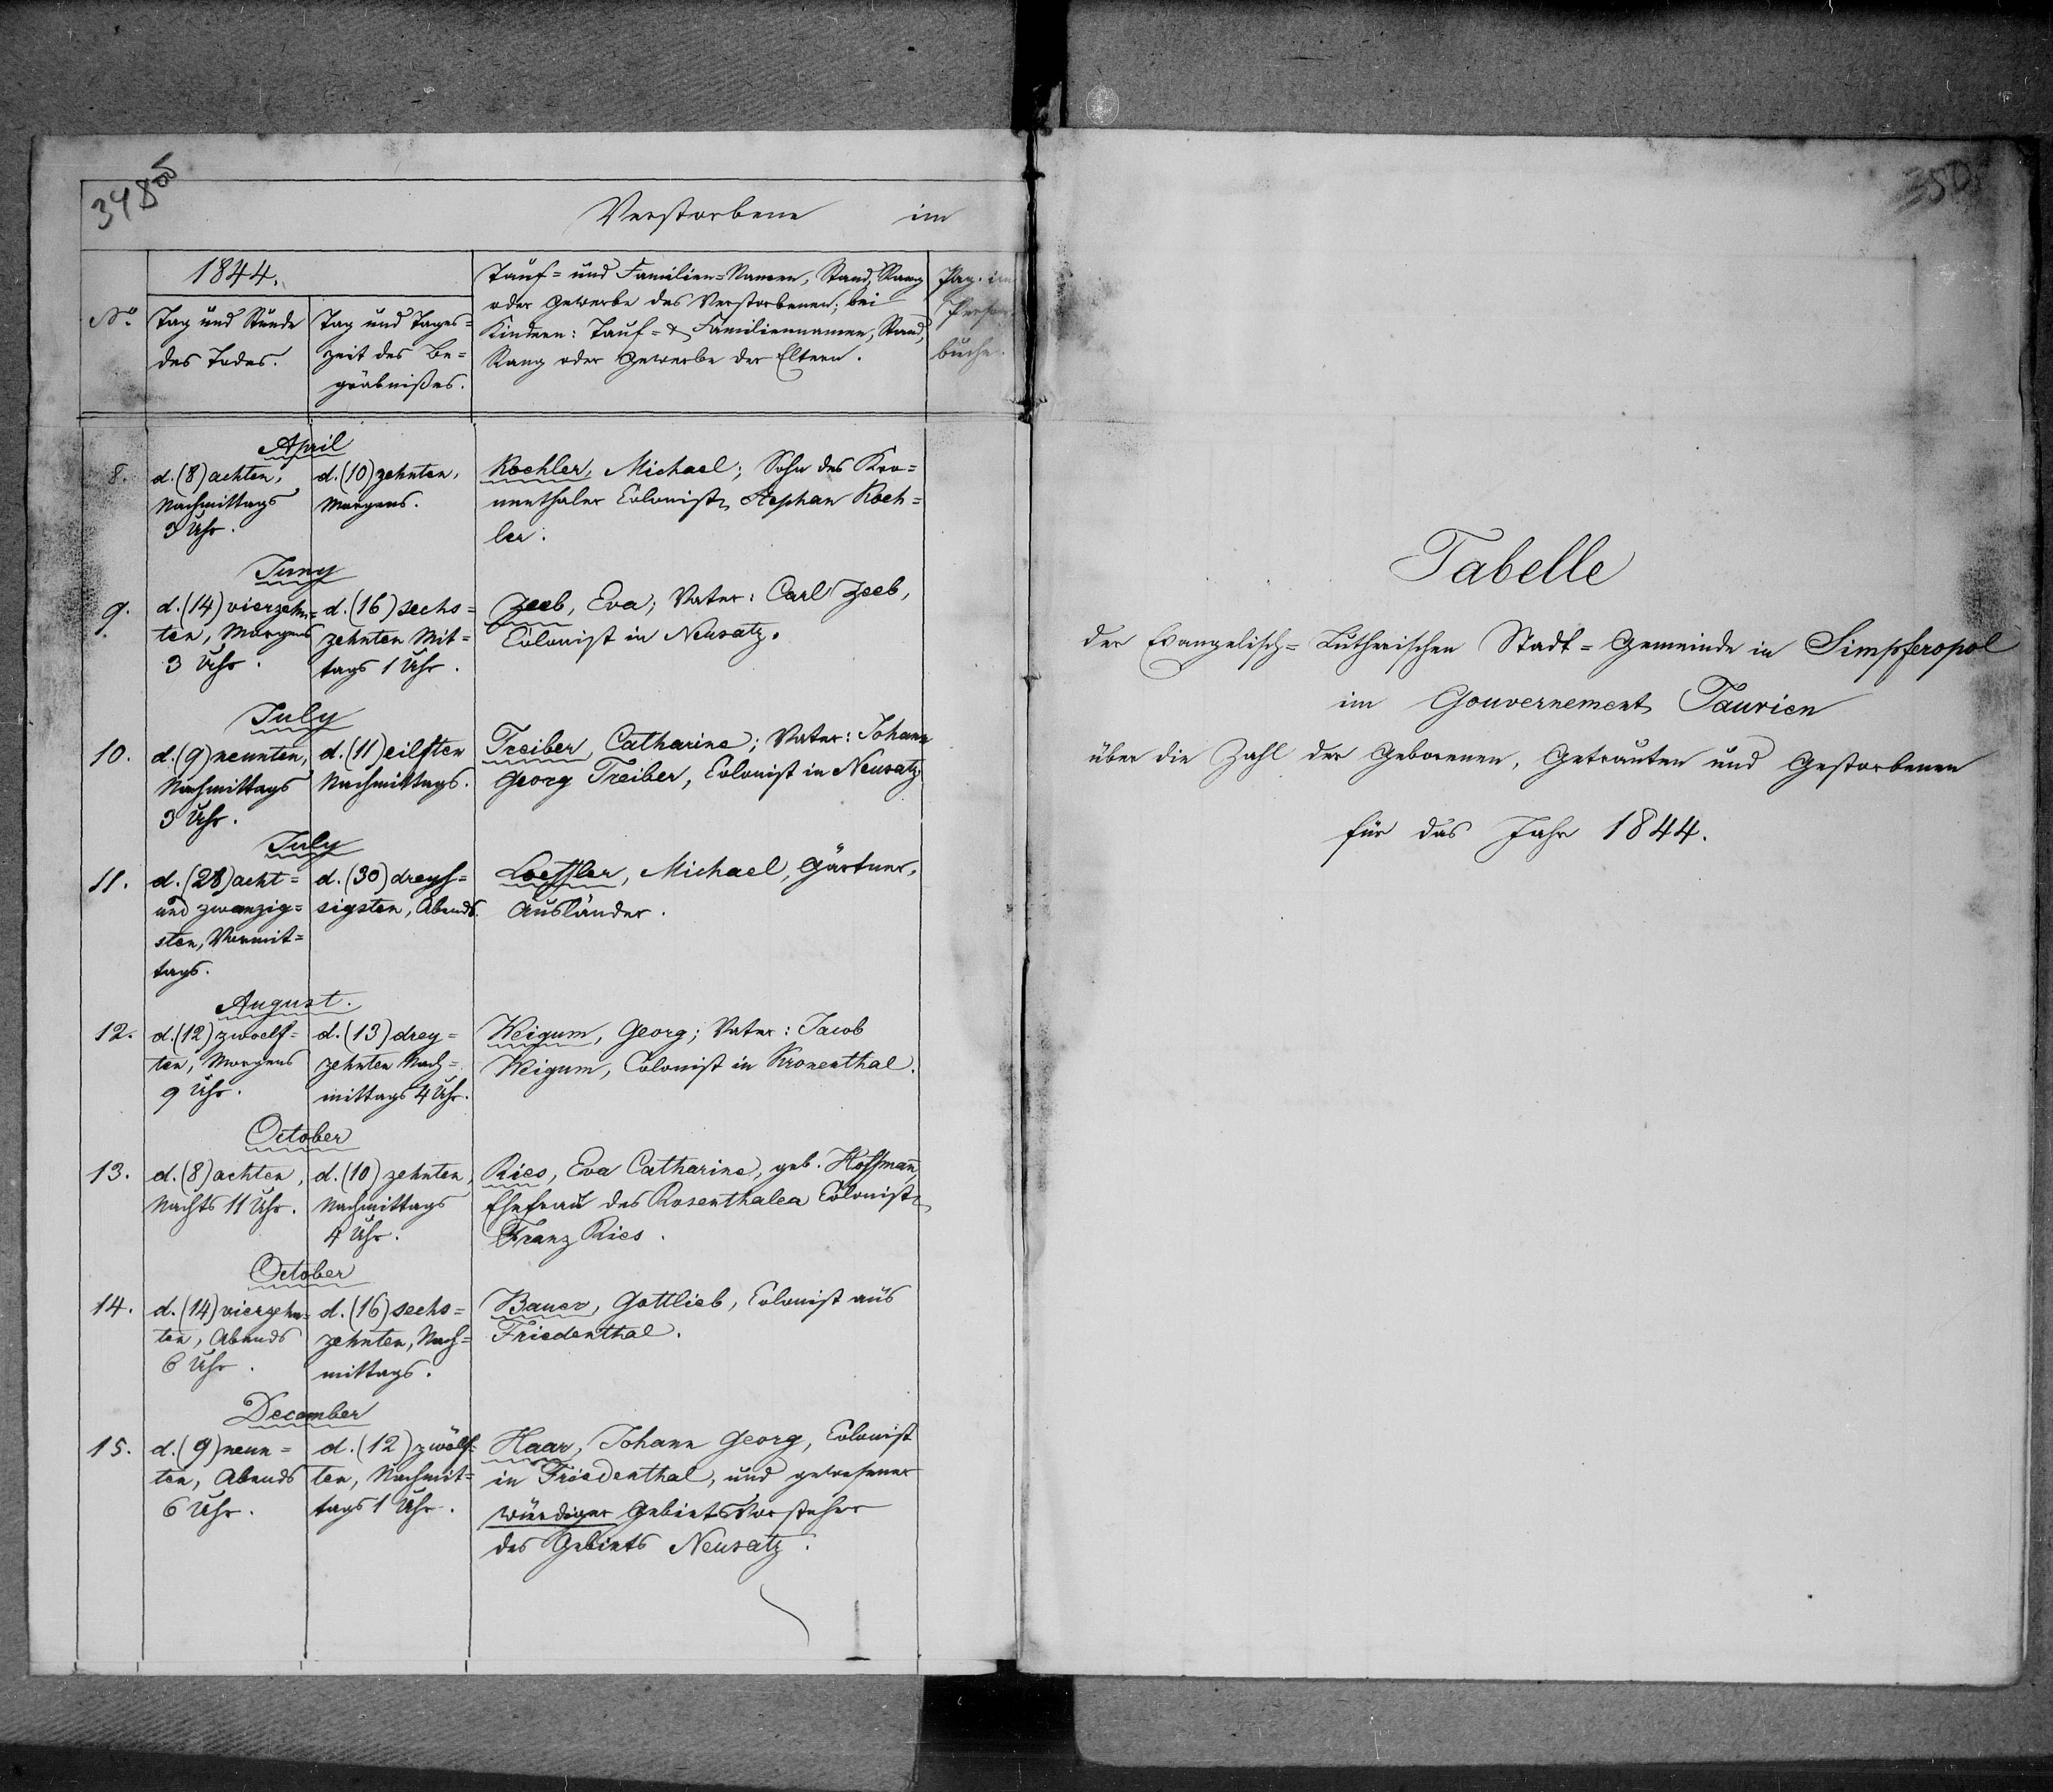 348 об
Verstorbene im
1844.
No.
Tag und Stunde
des Todes.
Tag und Tages=
zeit des Be=
gräbnißes.
Tauf= und Familien=Namen, Stand, Rang
oder Gewerbe des Verstorbenen; bei
Kindern: Tauf= & Familiennamen, Stand,
Rang oder Gewerbe der Eltern.
Pag. im
Person.
buche.
April
8.
d. (8) achten,
Nachmittags
3 Uhr.
d. (10) zehnten,
Morgens.
Koehler, Michael; Sohn des Kro=
nenthaler Colonist Stephan Koeh=
ler.
Juny
9.
d. (14) vierzehn=
ten, Morgens
3 Uhr.
d. (16) sechs=
zehnten Mit=
tags 1 Uhr.
Zeeb, Eva; Vater: Carl Zeeb,
Colonist in Neusatz.
July
10.
d. (9) neunten,
Nachmittags
3 Uhr.
d. (11) eilften
Nachmittags.
Treiber, Catharine; Vater: Johann
Georg Treiber, Colonist in Neusatz
July
11.
d. (28) acht=
und zwanzig=
sten, Vormit=
tags.
d. (30) dreys=
sigsten, Abends.
Loeffler, Michael, Gärtner,
Ausländer.
August.
12.
d. (12) zwoelf=
ten, Morgens
9 Uhr.
d. (13) drey=
zehnten Nach=
mittags 4 Uhr.
Weigum, Georg; Vater: Jacob
Weigum, Colonist in Kronenthal.
October
13.
d. (8) achten,
Nachts 11 Uhr.
d. (10) zehnten,
Nachmittags
4 Uhr.
Ries, Eva Catharine, geb. Hoffmann,
Ehefrau des Rosenthaler Colonist
Franz Ries.
October
14.
d. (14) vierzehn=
ten, Abends
6 Uhr.
d. (16) sechs=
zehnten, Nach=
mittags.
Bauer, Gottlieb, Colonist aus
Friedenthal.
December
15.
d. (9) neun=
ten, Abends
6 Uhr.
d. (12) zwölf=
ten, Nachmit=
tags 1 Uhr.
Haar, Johann Georg, Colonist
in Friedenthal, und gewesener
würdiger Gebietsvorsteher
des Gebiets Neusatz.
350
Tabelle
der Evangelisch=Lutherischen Stadt=Gemeinde in Simpferopol
im Gouvernement Taurien
über die Zahl der Geborenen, Getrauten und Gestorbenen
für das Jahr 1844.